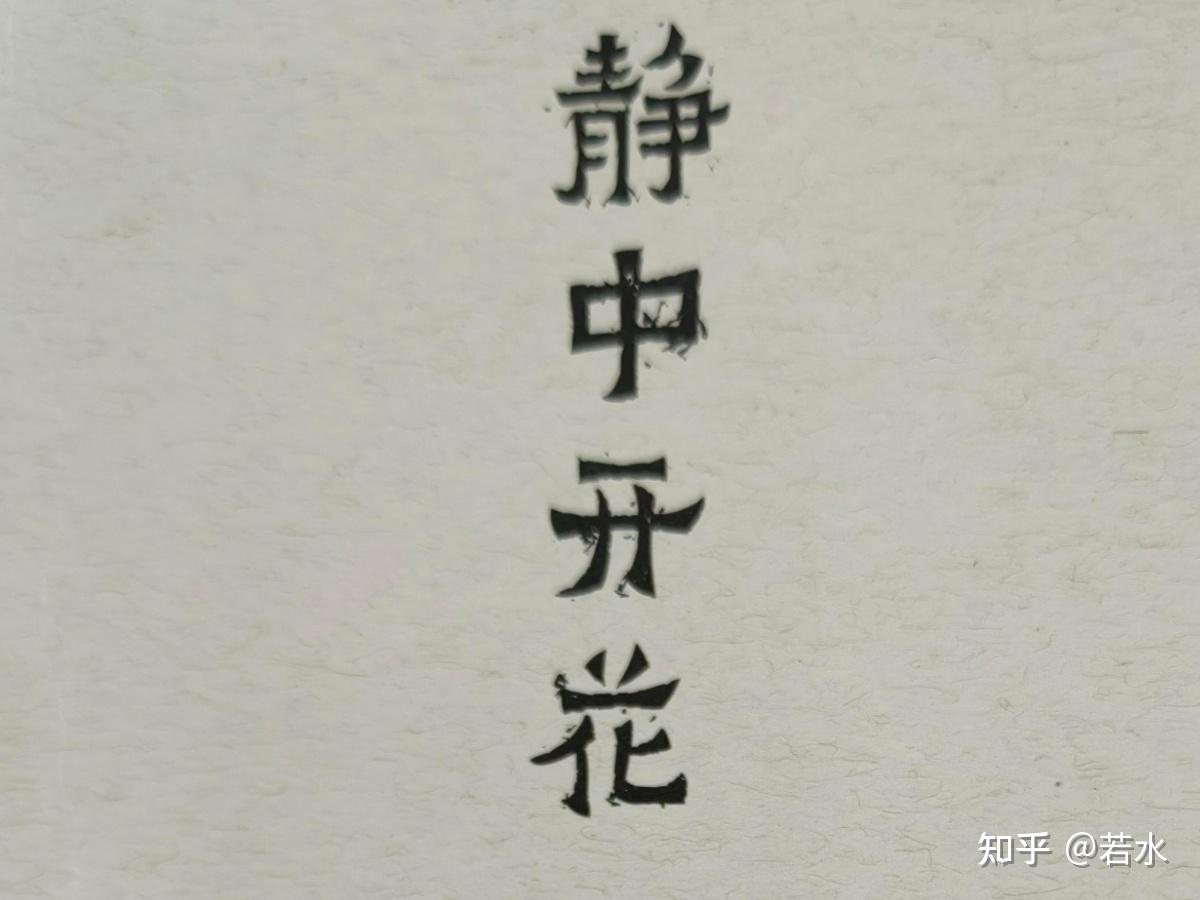 静中开花
知乎 @若水